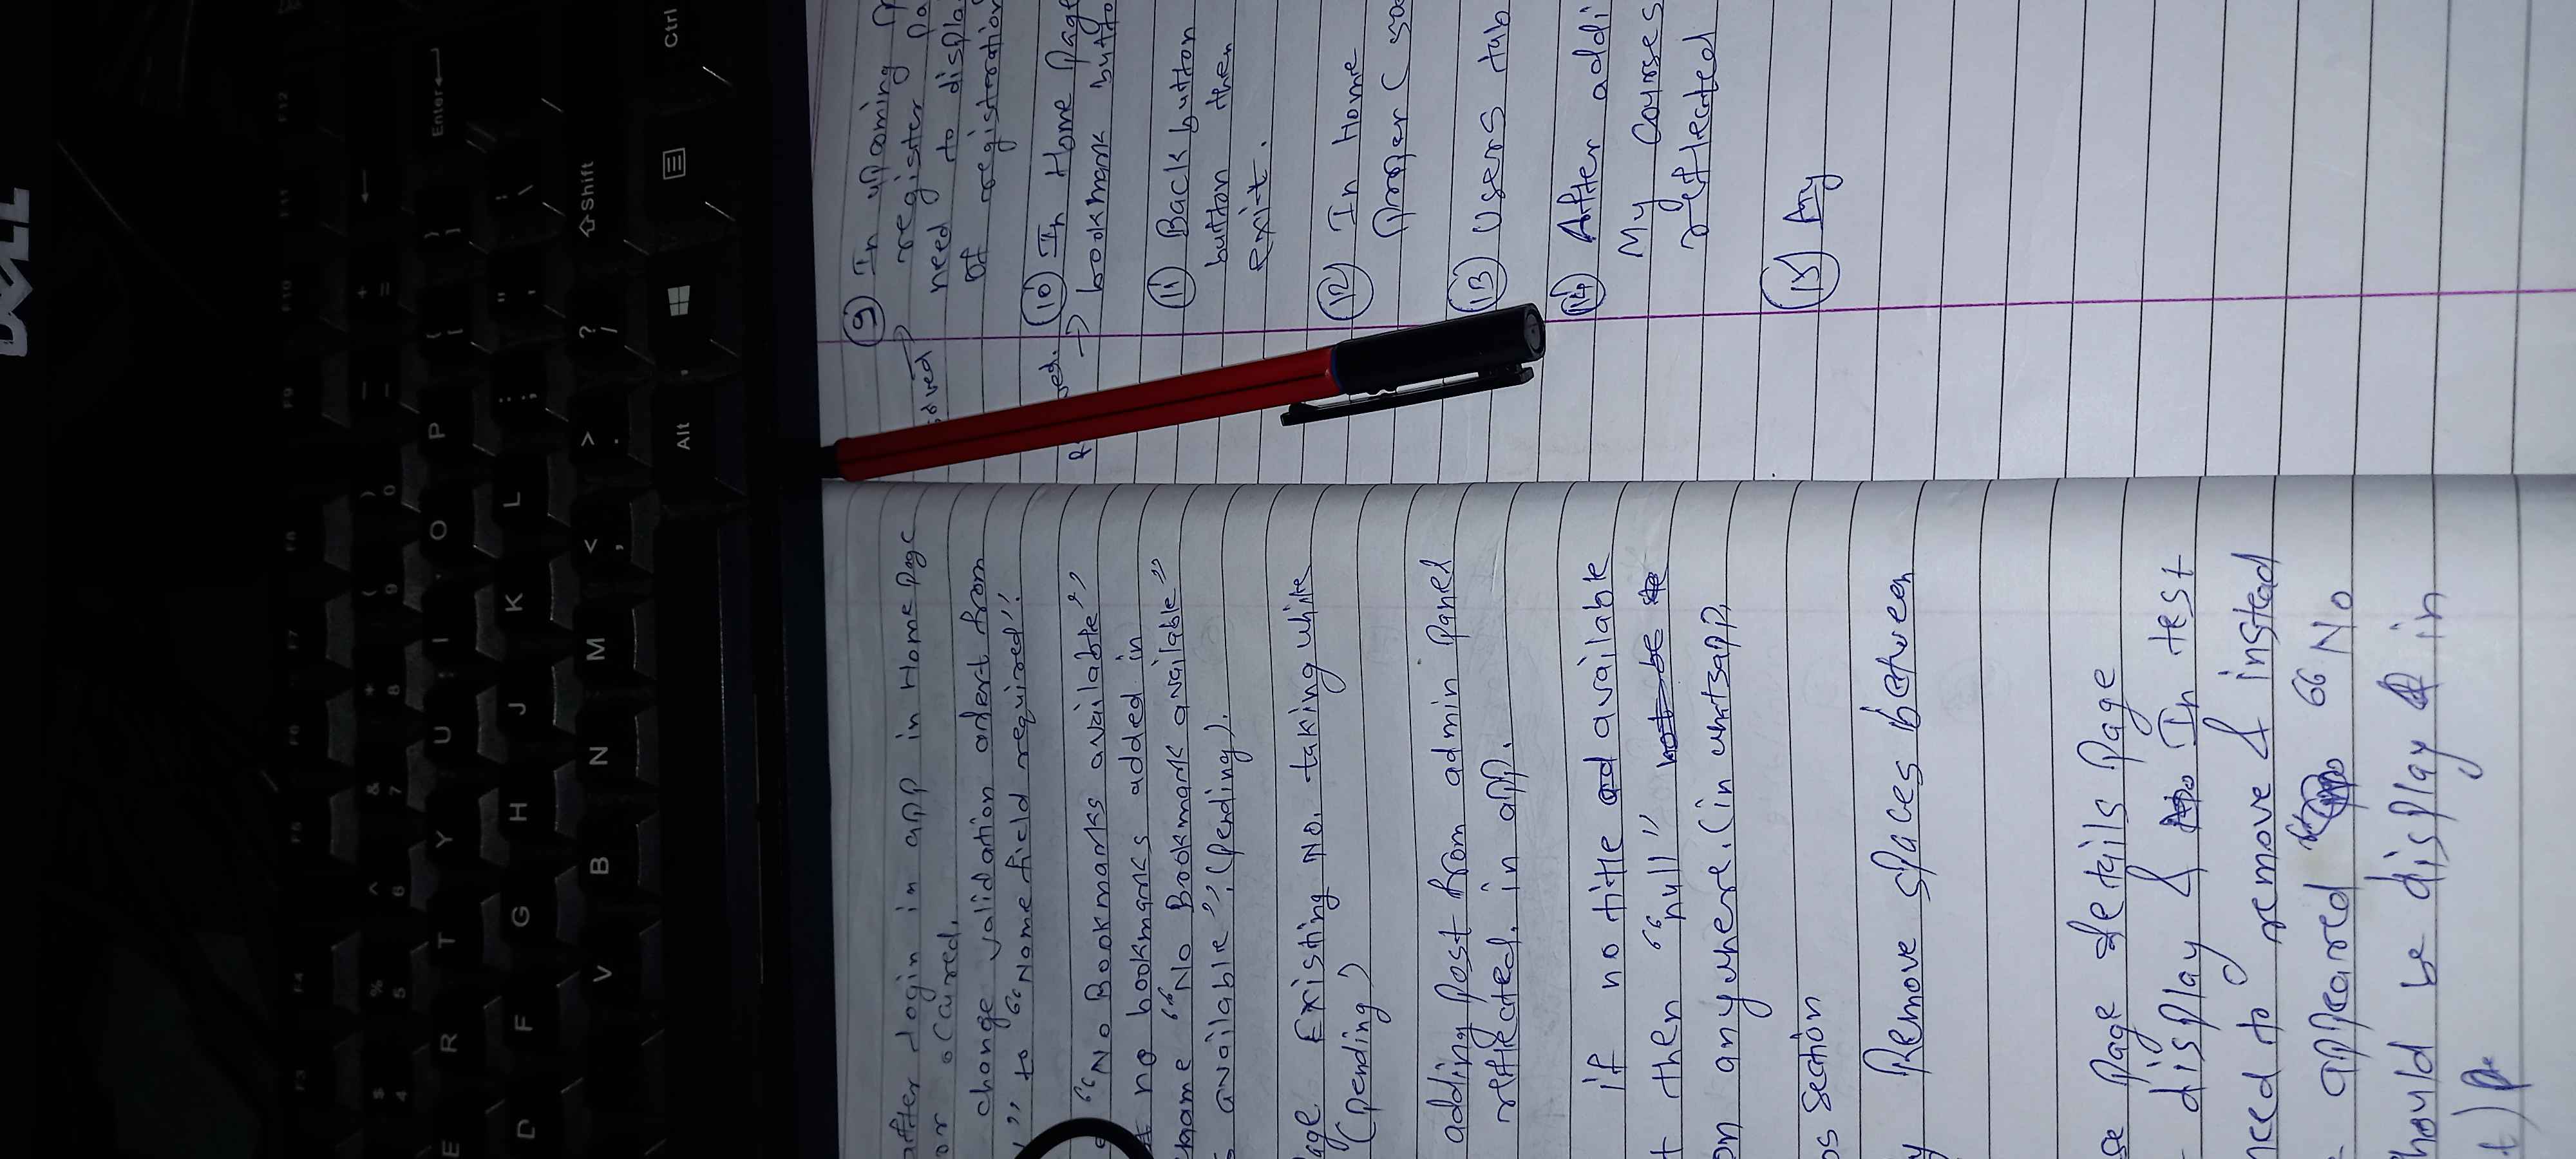 DELL
F3 F4 F5 F6 F7 F8 F9 F10 F11 F12
$ % ^ & * ( ) — +
4 5 6 7 8 9 0 - =
E R T Y U I O P { } Enter
[ ]
D F G H J K L : "
; ' \
V B N M < > ? Shift
, . /
Alt Ctrl
after login in app in Home Page
or occured.
change validation alert from
" to "Name field required".
"No Bookmarks available"
no bookmarks added in
name "No Bookmark available"
s available". (Pending).
age Existing No. taking while
(Pending)
adding post from admin panel
reflected. in app.
if no title ad available
t then "null" not be
on anywhere. (in whatsapp.
os Section
y Remove spaces between
se Page details Page
display & In test
need to remove & instead
appeared "No
hould be display & in
t)
9 In upcoming
solved register Pa
need to displa
of registeration
10 In Home Page
ved. → bookmark butto
11 Back button
button then
exit.
12 In Home
Proper (sa
13 Users tab
14 After addi
My Courses
reflected
15 Any